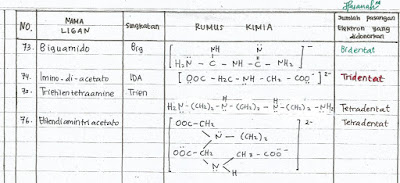 Hasanah
NO. NAMA LIGAN Singkatan RUMUS KIMIA Jumlah pasangan Elektron yang didonorkan
73. Biguamido Big [ H₂N – C – NH – C – NH₂ ]⁻ Bidentat
NH N
74. Imino-di-acetato IDA [ OOC – H₂C – NH – CH₂ – COO⁻ ]²⁻ Tridentat
75. Trietilentetraamine Trien H₂N – (CH₂)₂ – N – (CH₂)₂ – N – (CH₂)₂ – NH₂ Tetradentat
H H
76. Etilendiamintriacetato [ OOC – CH₂ ]²⁻ Tetradentat
N – (CH₂)₂
OOC – CH₂ CH₂ – COO⁻
N
H